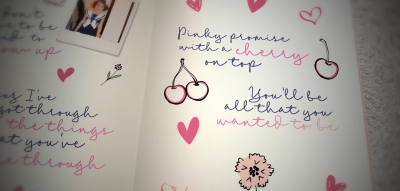 don't
me to be
to
ow up
us I've
got through
the things
at you've
me through
Pinky promise
with a cherry
on top
You'll be
all that you
wanted to be